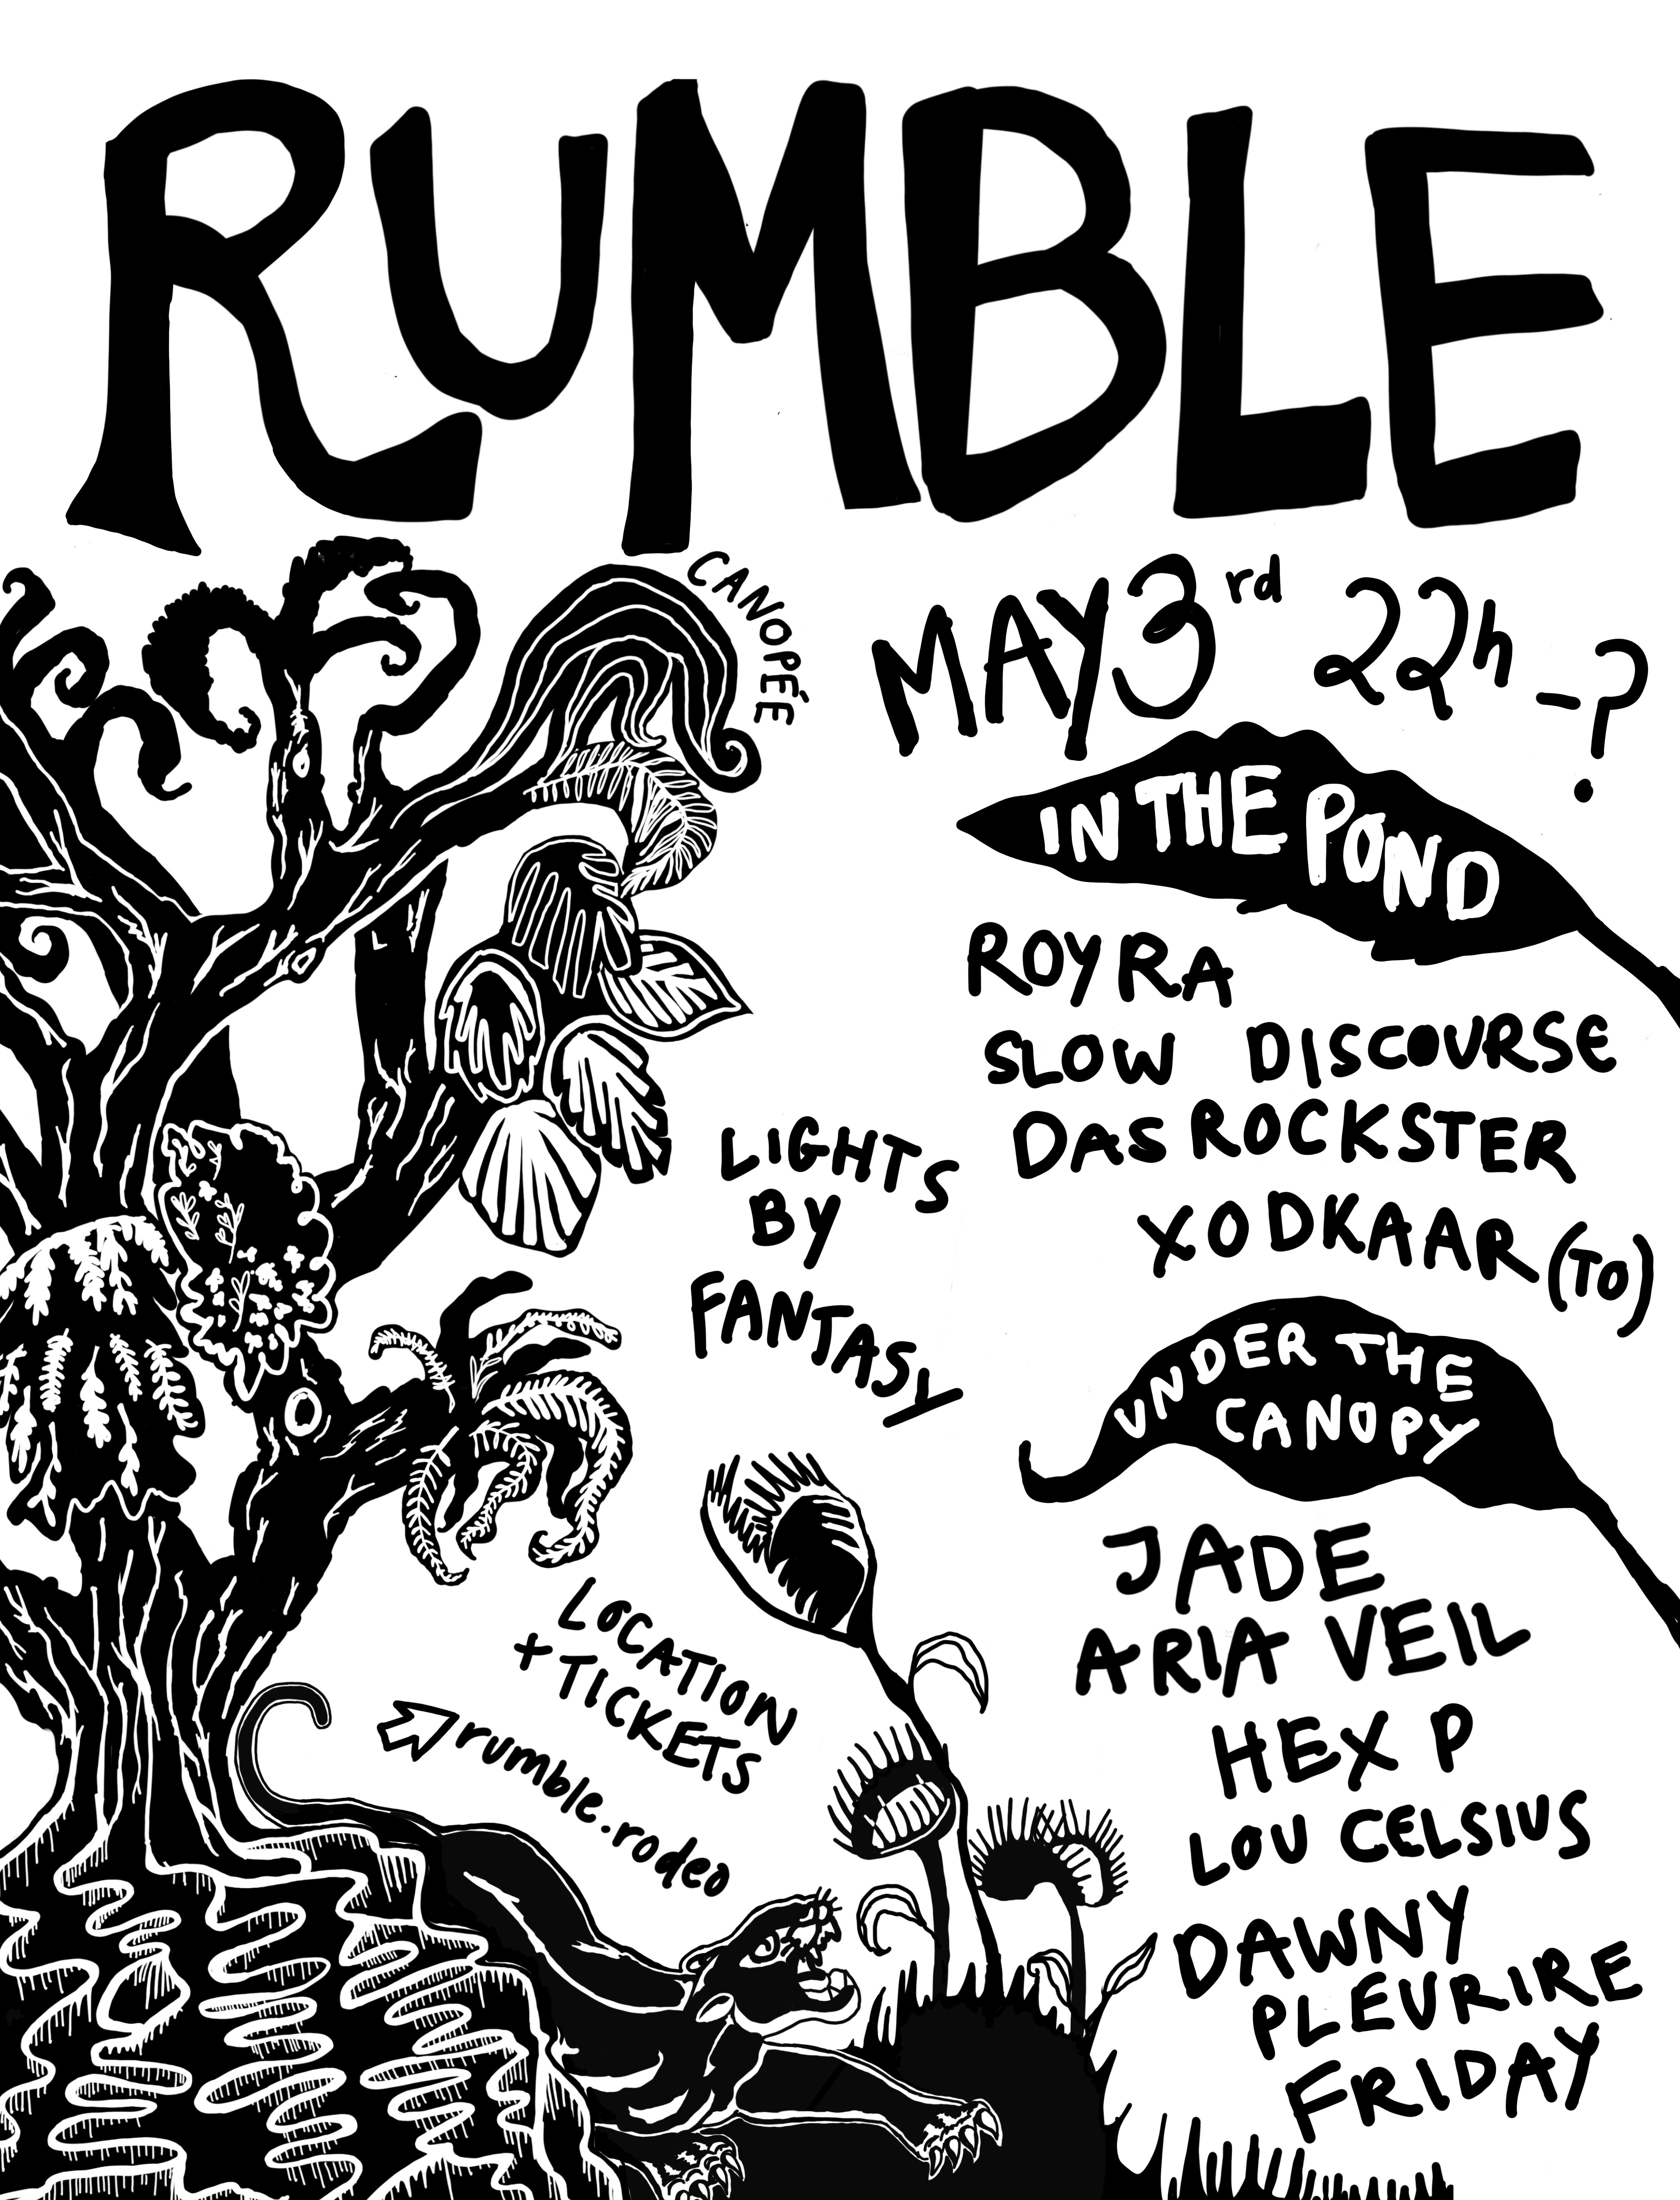 RUMBLE
CANOPÉE
MAY 3rd 22h - ?
IN THE POND
ROYRA
SLOW DISCOURSE
DAS ROCKSTER
XODKAAR (TO)
LIGHTS
BY
FANTASY
UNDER THE
CANOPY
JADE
ARIA VEIL
HEX P
LOU CELSIUS
DAWNY
PLEURIRE
FRIDAY
LOCATION
+ TICKETS
rumble.rodeo